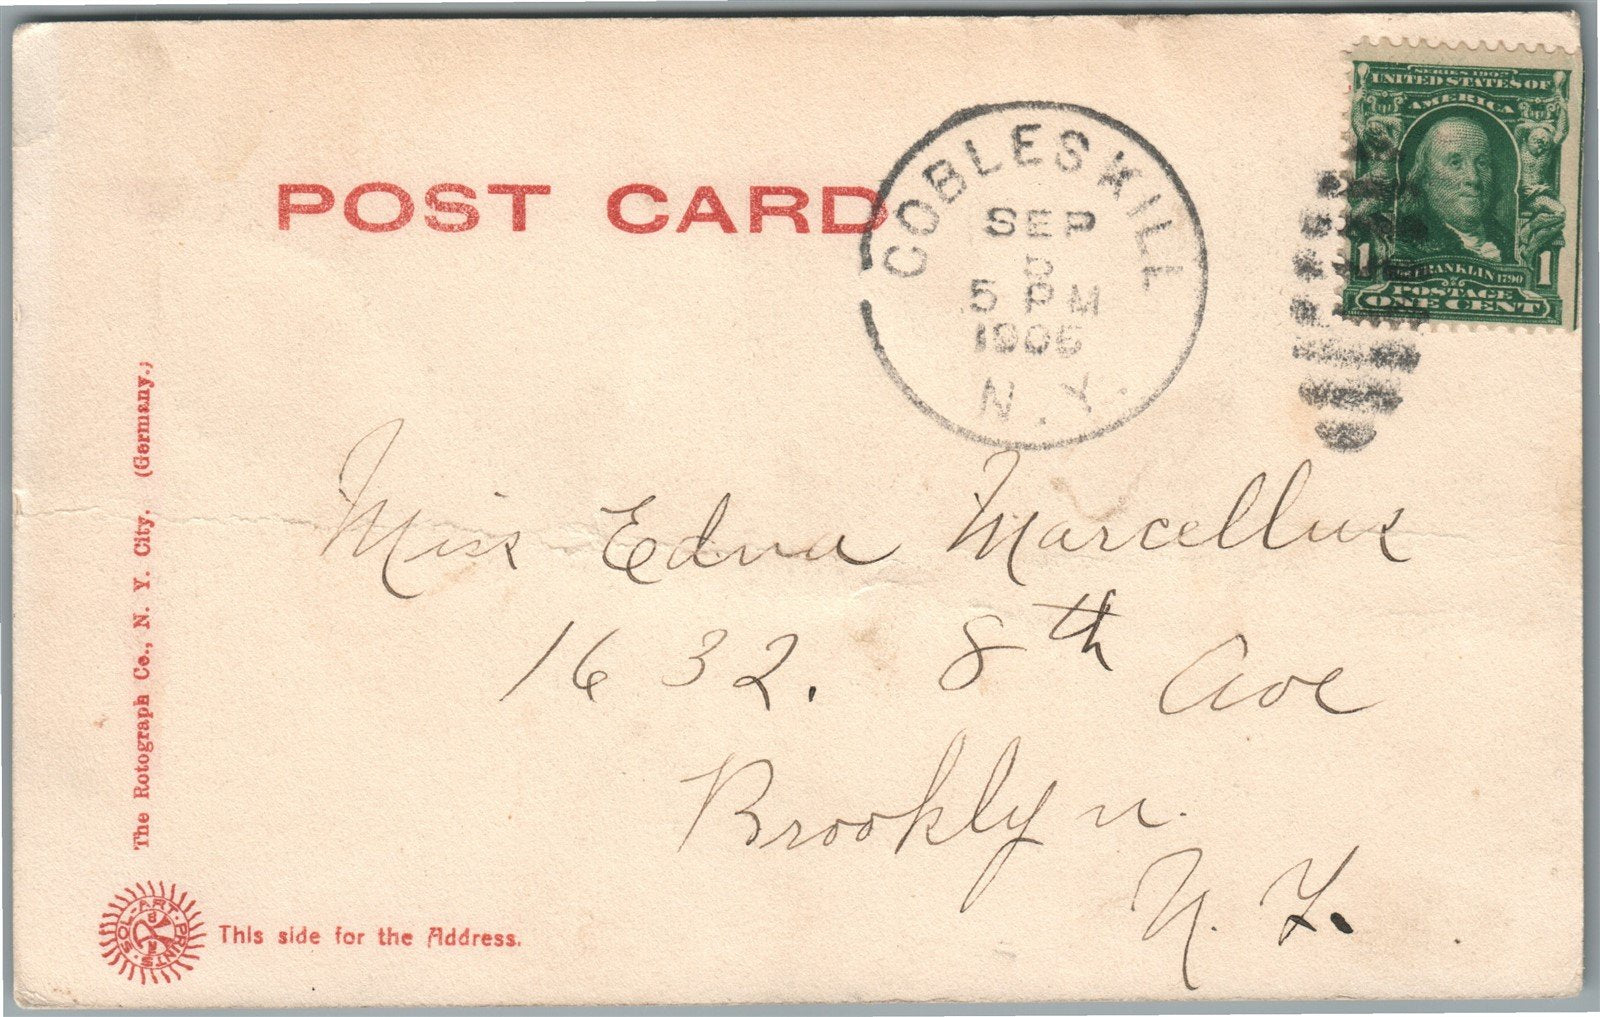 POST CARD
COBLESKILL
SEP
5 PM
1906
N.Y.
SERIES 1902
UNITED STATES OF
AMERICA
FRANKLIN 1790
1 1
POSTAGE
ONE CENT
Miss Edna Marcellus
1632. 8th Ave
Brooklyn.
N. Y.
The Rotograph Co., N. Y. City. (Germany.)
SOL-ART-PRINTS
This side for the Address.